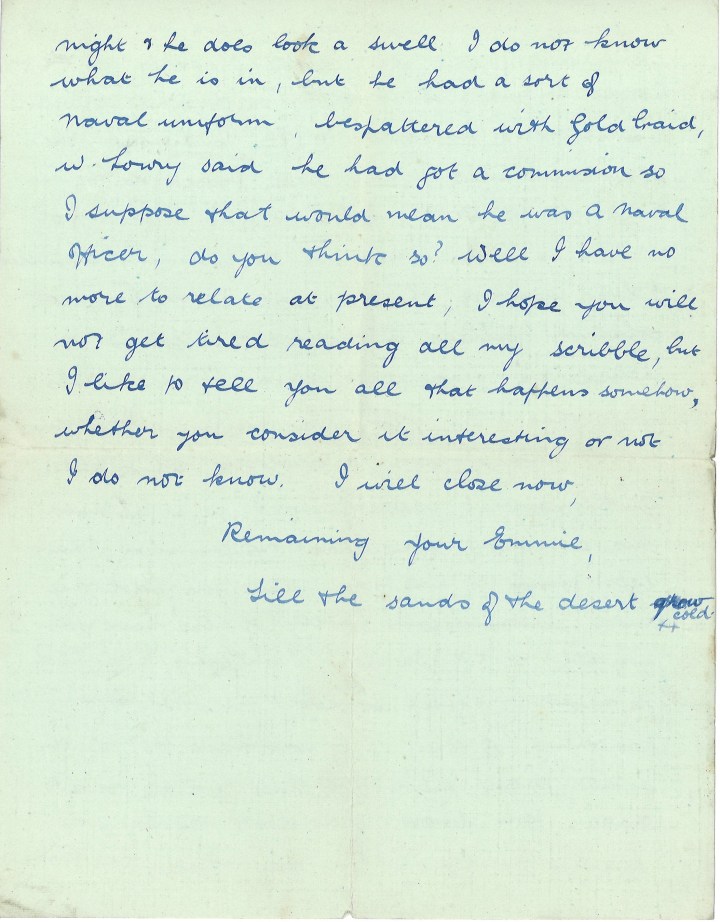 night & he does look a swell I do not know
what he is in, but he had a sort of
Naval uniform, bespattered with Gold braid,
W. Lowry said he had got a commision so
I suppose that would mean he was a Naval
Officer, do you think so? Well I have no
more to relate at present, I hope you will
not get tired reading all my scribble, but
I like to tell you all that happens somehow,
whether you consider it interesting or not
I do not know. I will close now,
Remaining your Emmie,
Till the sands of the desert grow
cold.
++